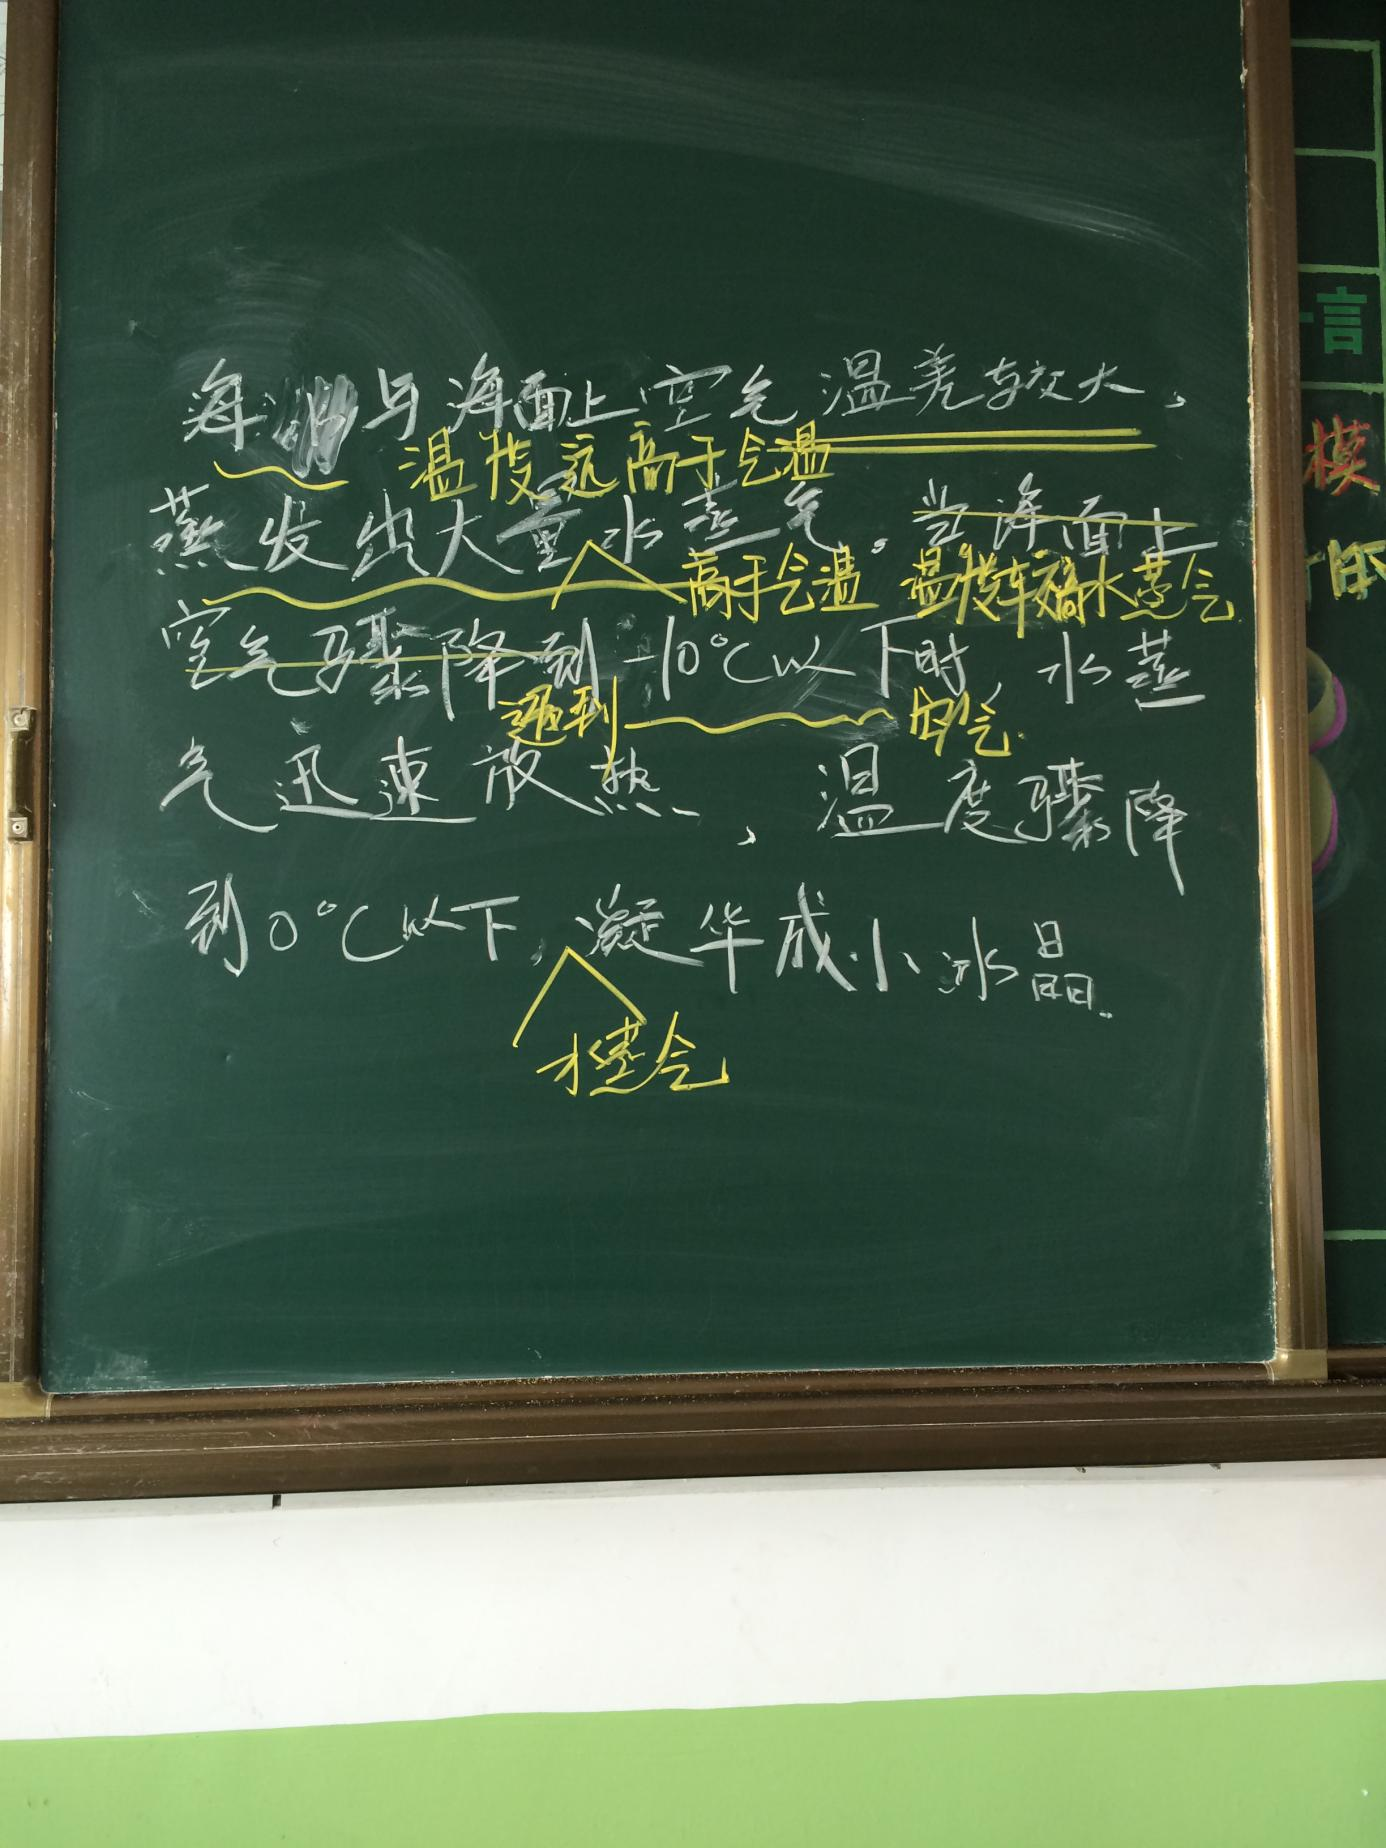 海 与海面上空气温差较大，
温度远高于气温
蒸发出大量水蒸气。当海面上
高于气温 温度较高水蒸气
空气骤降到-10℃以下时，水蒸
遇到 空气
气迅速放热，温度骤降
到0℃以下，凝华成小冰晶.
水蒸气
言
模